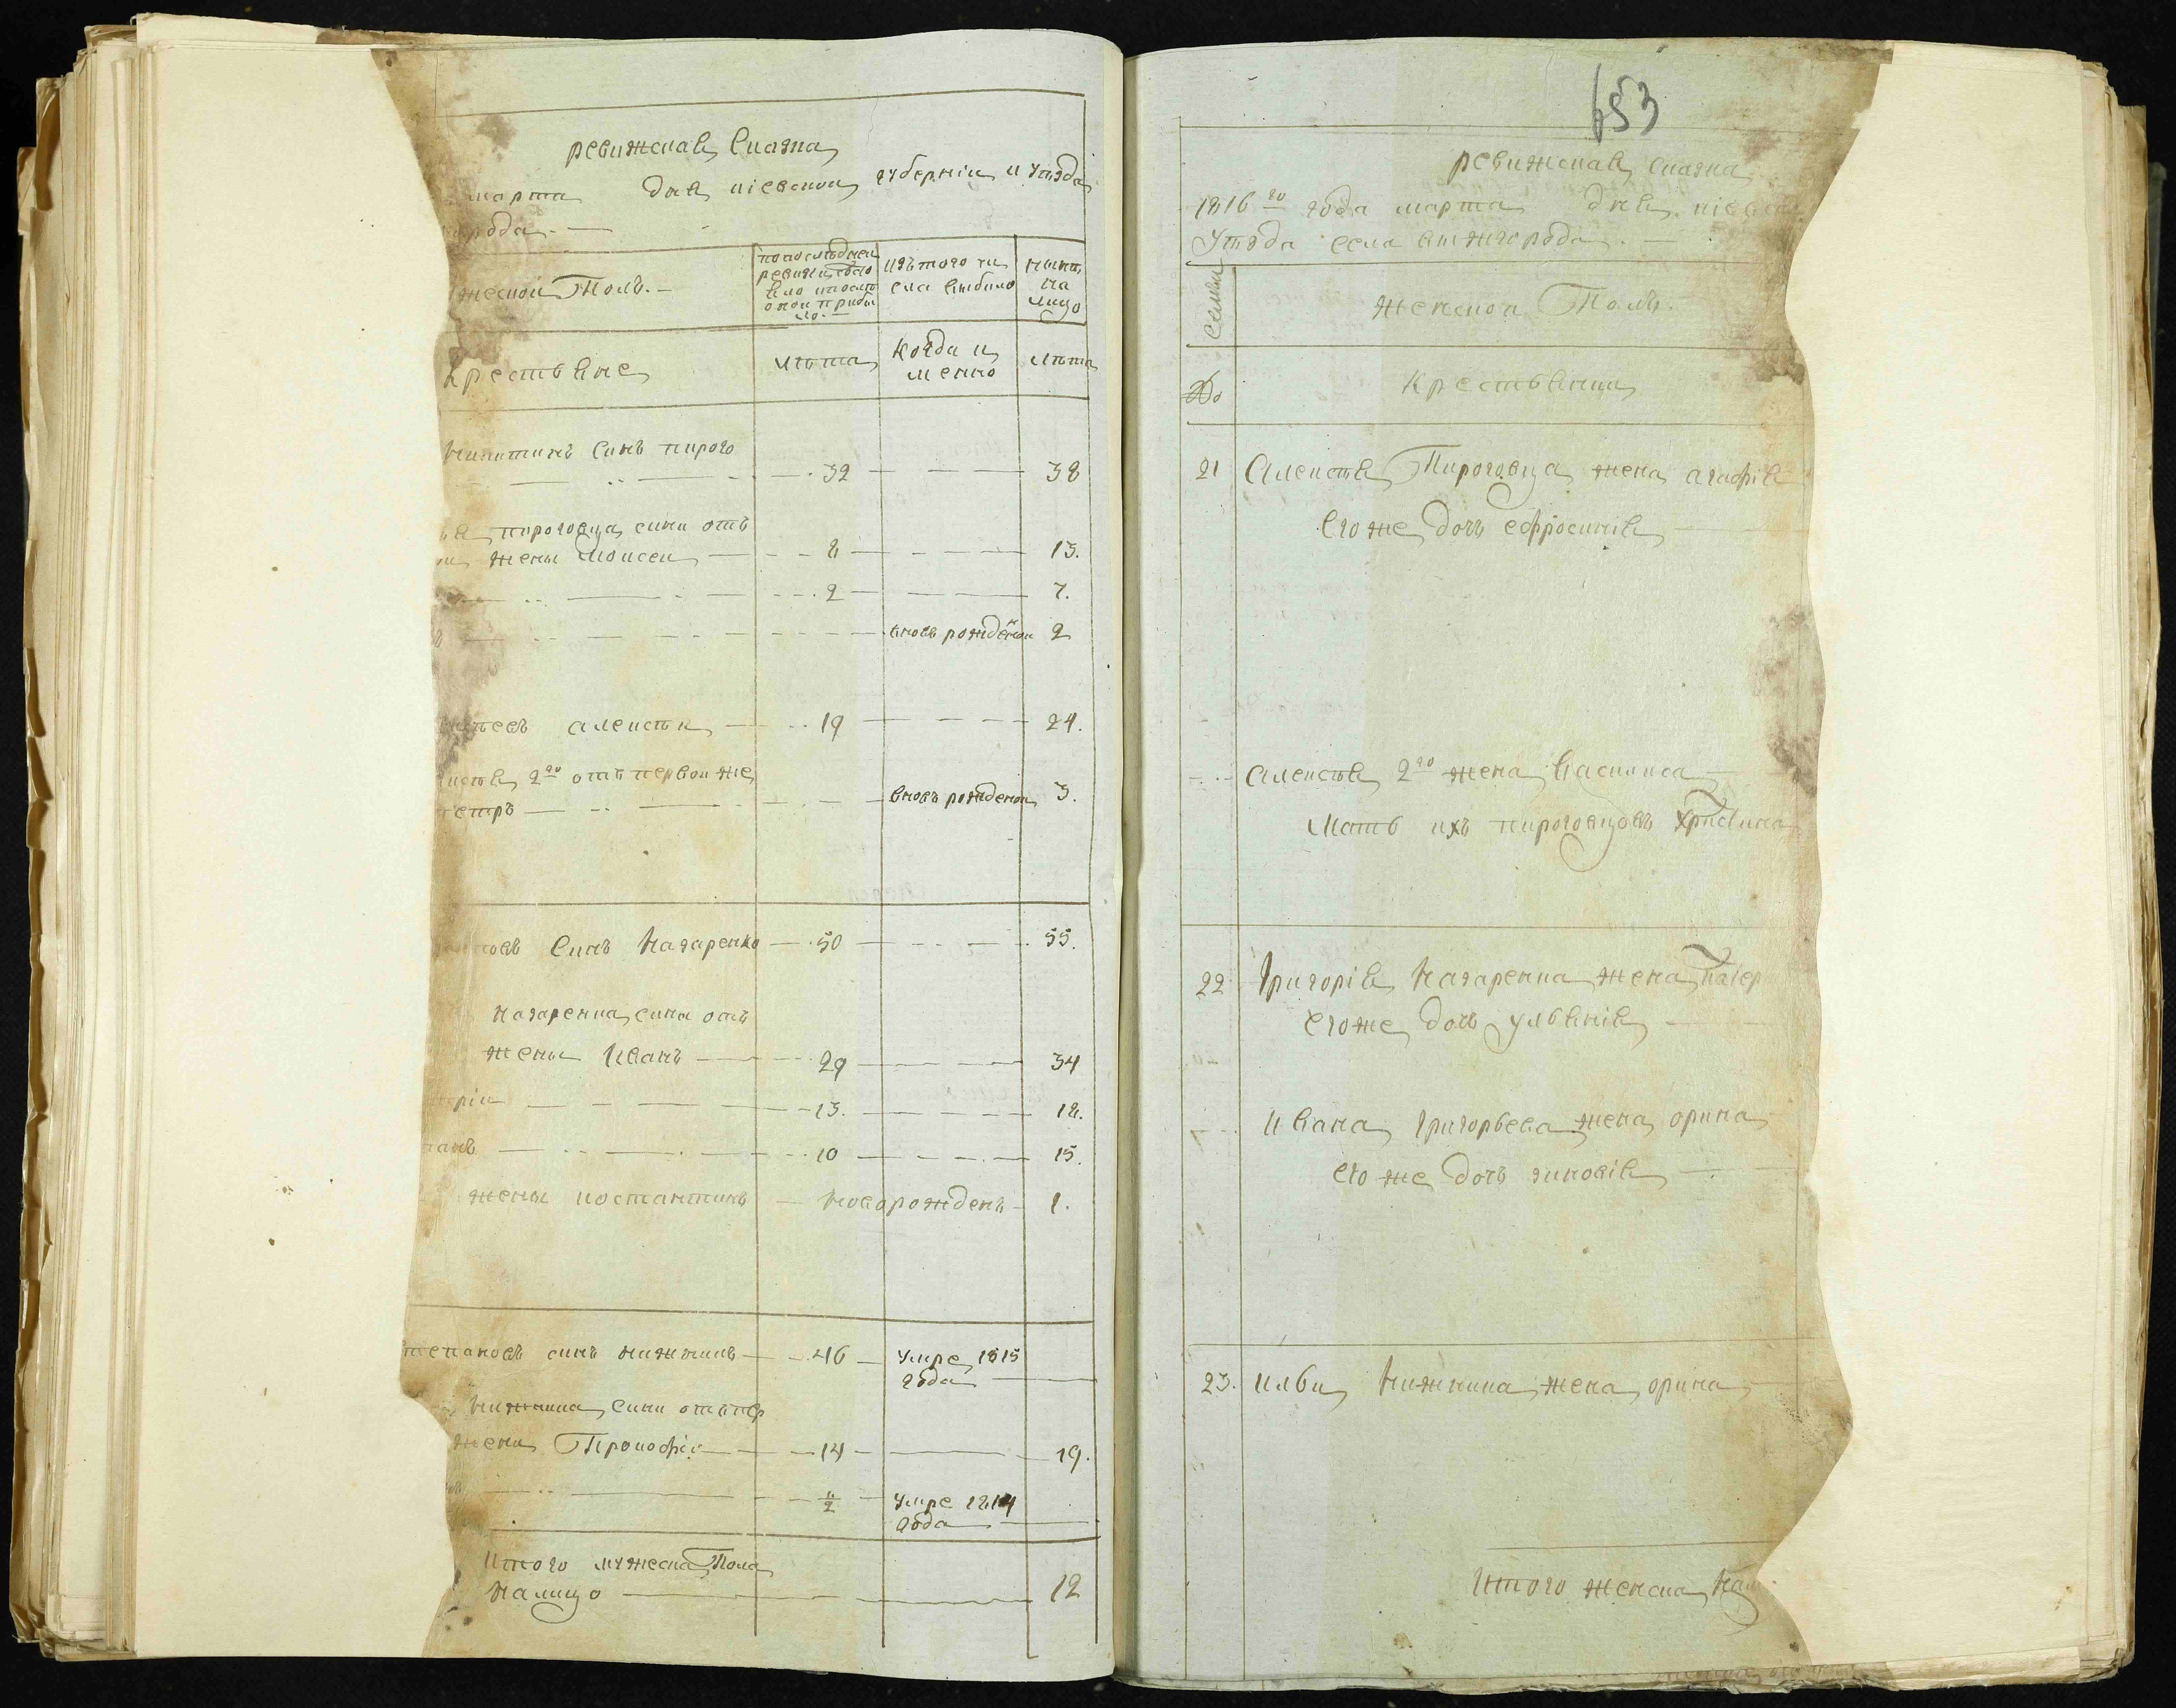 ревижская сказка
марта дня кіевской губерніи и уезда
города
жеской Полъ.
по последней ревизіи состояло и после оной прибыло
изъ того числа выбыло
ныне на лицо
Крестьяне
лета
Когда именно
лета
Никитинъ Синъ пирого
32 38
пироговца сини отъ
жены Моисей 8 13.
2 7.
вновь рожденой 2
алексей 19 24.
2го отъ первой же
петръ вновь рожденой 3.
Синъ Назаренко 50 55.
Назаренка сини отъ
жены Иванъ 29 34
13. 18.
10 15.
жены костантинъ новорожденъ 1.
степановъ синъ нижникъ 46 умре 1815
года
Нижника сини отъ пер
жени Прокофій 14 19.
умре 1814
года
Итого мужеска Пола
Налицо 12
653
ревижская сказка
1816го года марта дня кіевск
Уезда села вишгорода.
Семьи
женской Полъ.
№
Крестьянки
21 Алексея Пироговца жена агафія
Его же дочь ефросинія
Алексея 2го жена Василиса
Мать ихъ пироговцовъ Христина
22 Григорія Назаренка жена Катер
его же дочь ульянія
Ивана Григорьева жена орина
его же дочь зиновія
23. Ильи Нижника жена орина
Итого женска На